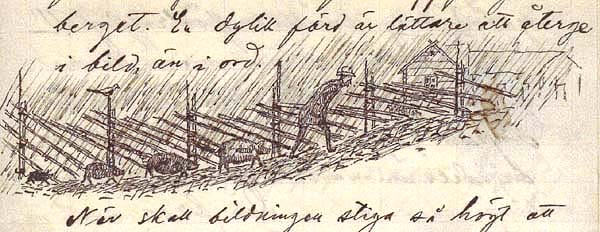 berget. En dylik färd är lättare att återge
i bild, än i ord.
När skall bildningen stiga så högt att